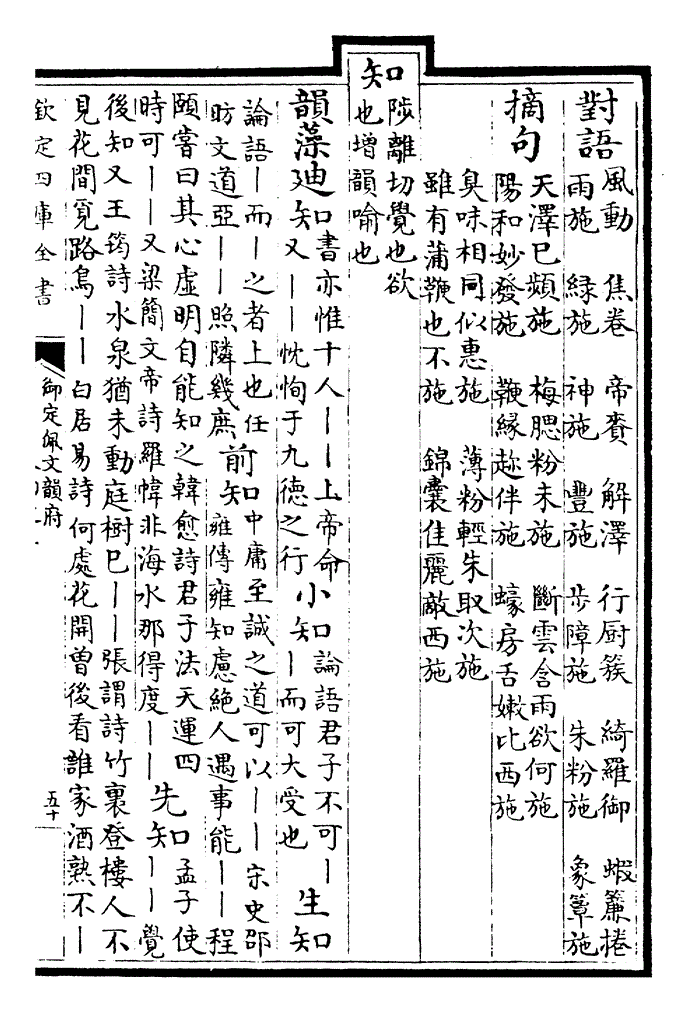 對語
風動 焦卷 帝賚 解澤 行厨簇 綺羅御 蝦簾捲
雨施 緑施 神施 豐施 步障施 朱粉施 象簟施
摘句
天澤已頻施 梅腮粉未施 斷雲含雨欲何施
陽和妙發施 鞭縁趂伴施 蠔房舌嫩比西施
臭味相同似惠施 薄粉輕朱取次施
雖有蒲鞭也不施 錦囊佳麗敵西施
知
陟離切覺也欲
也增韻喻也
韻藻
迪知
書亦惟十人丨丨上帝命
又丨丨忱恂于九德之行
小知
論語君子不可丨
丨而可大受也
生知
論語丨而丨之者上也任
昉文道亞丨丨照隣幾庶
前知
中庸至誠之道可以丨丨宋史邵
雍傳雍知慮絶人遇事能丨丨程
頤嘗曰其心虛明自能知之韓愈詩君子法天運四
時可丨丨又梁簡文帝詩羅幃非海水那得度丨丨
先知
孟子使
丨丨覺
後知又王筠詩水泉猶未動庭樹已丨丨張謂詩竹裏登樓人不
見花間覓路鳥丨丨白居易詩何處花開曾後看誰家酒熟不丨
欽定四庫全書
御定佩文韻府
五十